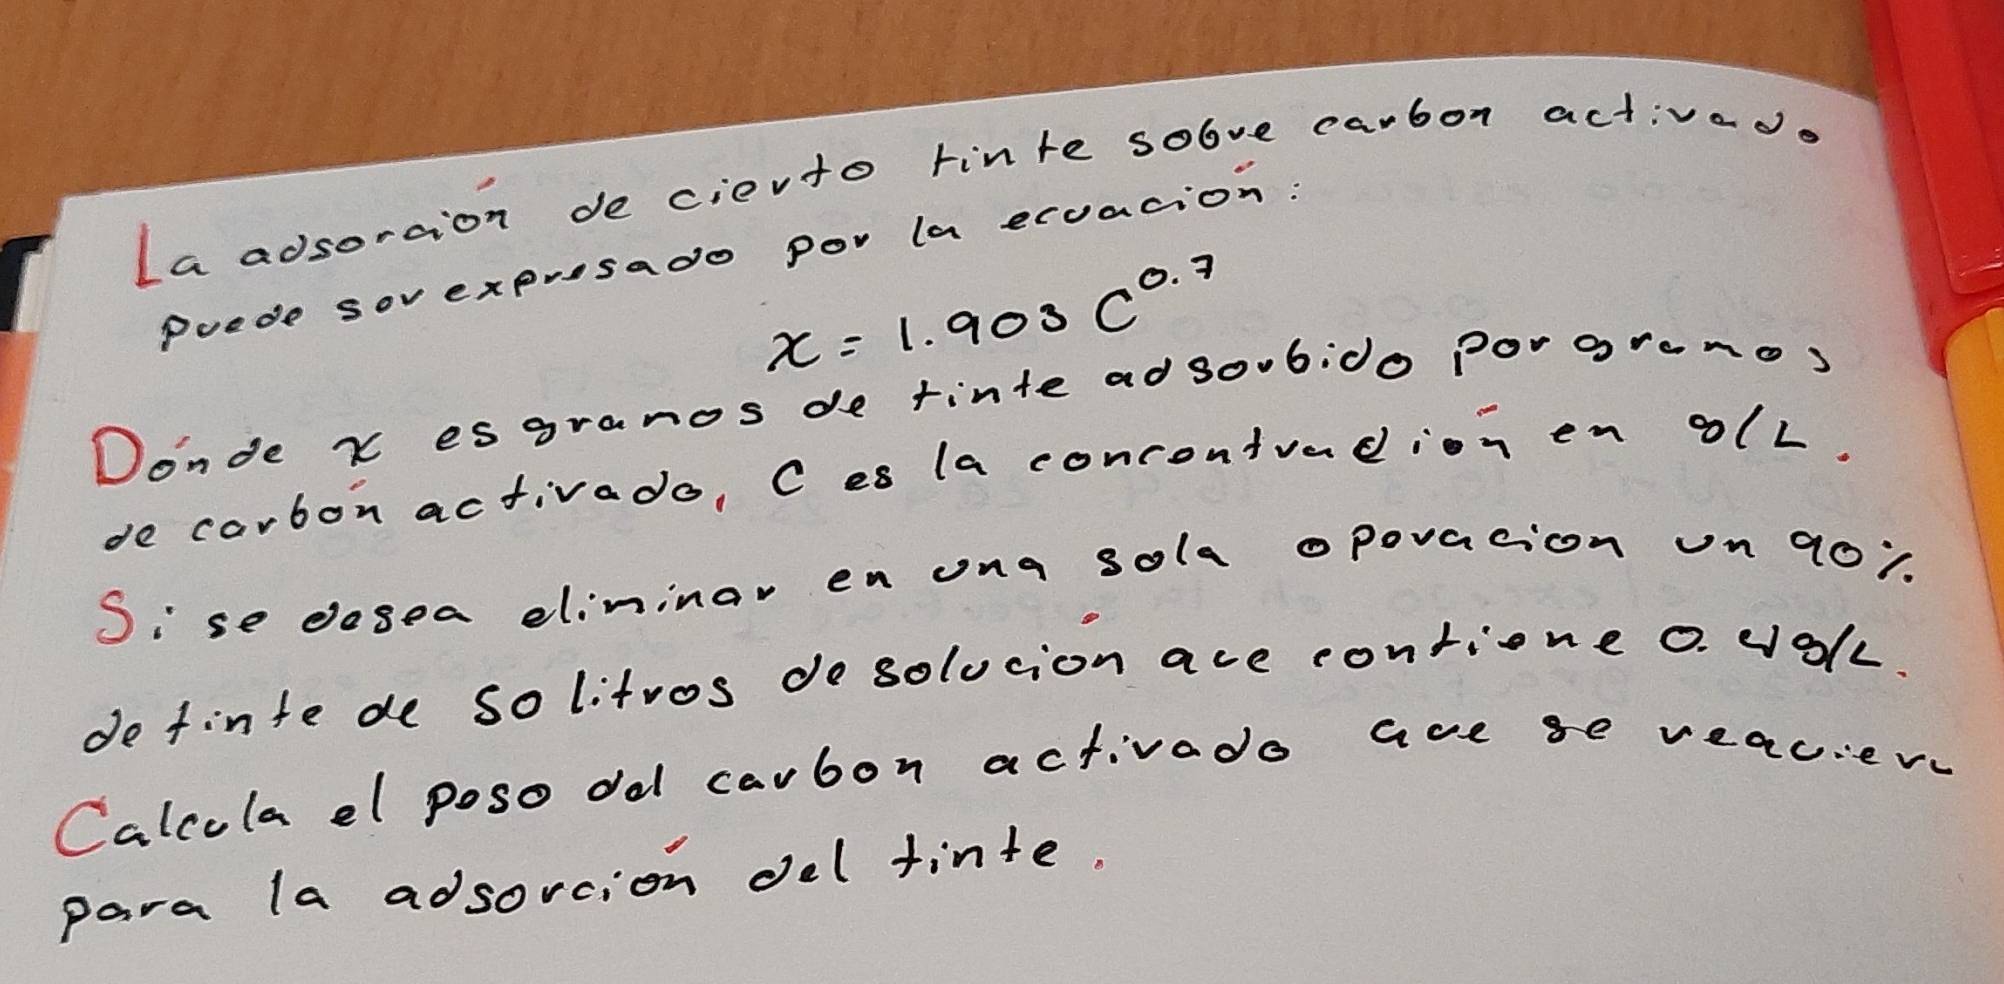 La adsorción de cierto tinte sobre carbon activado
puede ser expresado por la ecuación:
x = 1.903 C^0.7
Dónde x es gramos de tinte adsorbido por gramos
de carbón activado, C es la concentración en g/L.
Si se desea eliminar en una sola operacion un 90%.
de tinte de 50 litros de solución que contiene 0.4g/L.
Calcula el peso del carbon activado que se requiere
para la adsorción del tinte.